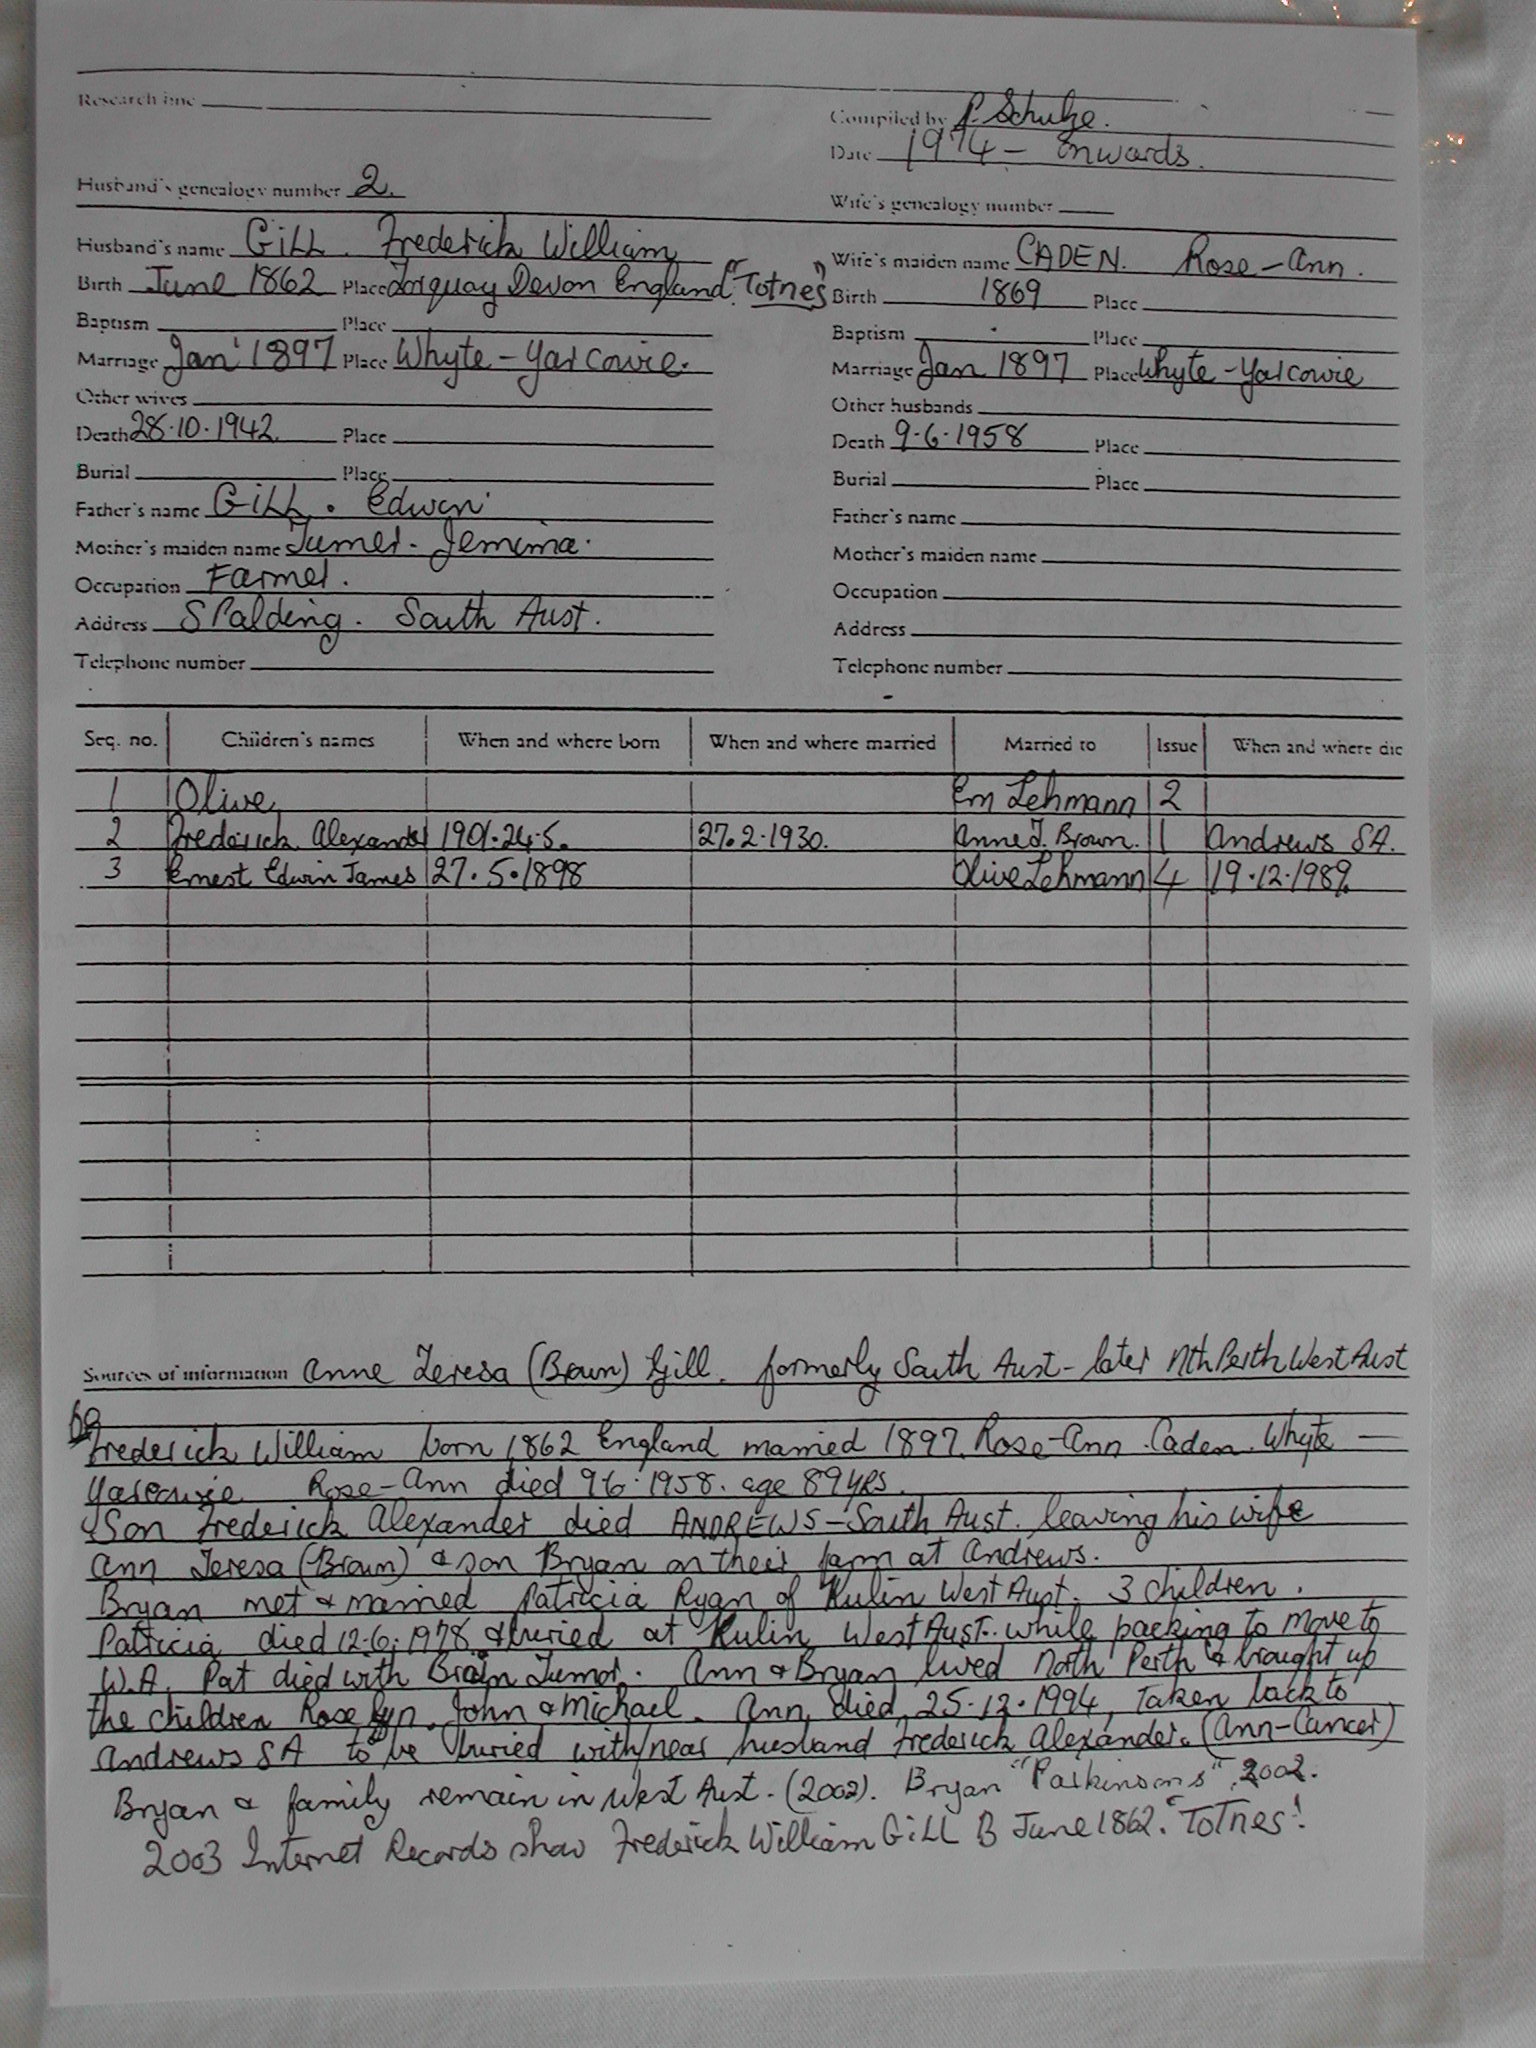 Research line
Compiled by P. Schulze.
Date 1974 - onwards.
Husband's genealogy number 2.
Wife's genealogy number
Husband's name GiLL. Frederick William
Wife's maiden name CADEN. Rose-Ann.
Birth June 1862 Place Torquay Devon England. "Totnes"
Birth 1869 Place
Baptism Place
Baptism Place
Marriage Jan' 1897 Place Whyte-Yarcowie.
Marriage Jan 1897 Place Whyte-Yarcowie
Other wives
Other husbands
Death 28.10.1942. Place
Death 9.6.1958 Place
Burial Place
Burial Place
Father's name GiLL. Edwin
Father's name
Mother's maiden name Turner. Jemima.
Mother's maiden name
Occupation Farmer.
Occupation
Address SPalding. South Aust.
Address
Telephone number
Telephone number
Seq. no. Children's names When and where born When and where married Married to Issue When and where die
1 Olive Em Lehmann 2
2 Frederick Alexander 1901.24.5. 27.2.1930. Anne T. Brown. 1 Andrews SA.
3 Ernest Edwin James 27.5.1898 Olive Lehmann 4 19.12.1989.
Sources of information Anne Teresa (Brown) Gill. formerly South Aust - later Nth Perth West Aust
Frederick William born 1862 England married 1897. Rose-Ann. Caden. Whyte -
Yarcowie Rose-Ann died 9.6.1958. age 89 yrs.
Son Frederick Alexander died ANDREWS - South Aust. leaving his wife
Ann Teresa (Brown) & son Bryan on their farm at Andrews.
Bryan met & married Patricia Ryan of Kulin West Aust. 3 children.
Patricia died 12.6.1978 & buried at Kulin West Aust. while packing to move to
W.A. Pat died with Brain Tumor. Ann & Bryan lived North Perth & brought up
the children Roselyn, John & Michael. Ann died 25.12.1994, Taken back to
Andrews SA to be buried with/near husband Frederick Alexander. (Ann-Cancer)
Bryan & family remain in West Aust. (2002). Bryan "Parkinsons" 2002.
2003 Internet Records show Frederick William GiLL B June 1862. "Totnes".